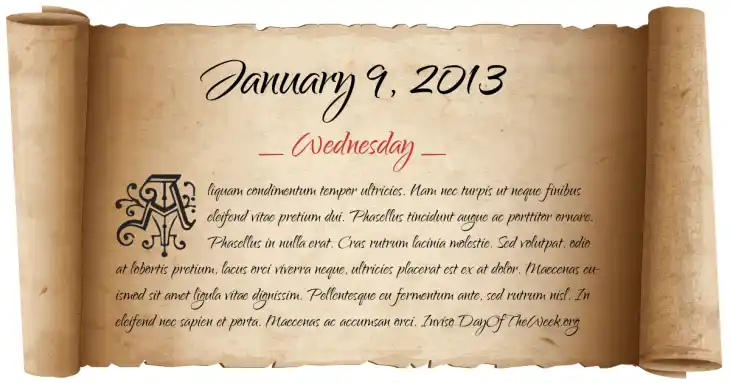 January 9, 2013
_ Wednesday _
Aliquam condimentum tempor ultricies. Nam nec turpis ut neque finibus
eleifend vitae pretium dui. Phasellus tincidunt augue ac porttitor ornare.
Phasellus in nulla erat. Cras rutrum lacinia molestie. Sed volutpat, odio
at lobortis pretium, lacus orci viverra neque, ultricies placerat est ex at dolor. Maecenas eu-
ismod sit amet ligula vitae dignissim. Pellentesque eu fermentum ante, sed rutrum nisl. In
eleifend nec sapien et porta. Maecenas ac accumsan orci. Inviso DayOfTheWeek.org